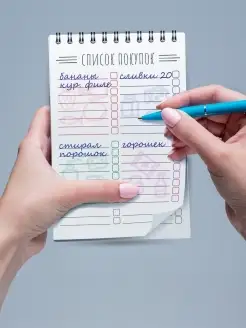 СПИСОК ПОКУПОК
бананы
кур. филе
сливки 20
стирал.
порошок
горошек